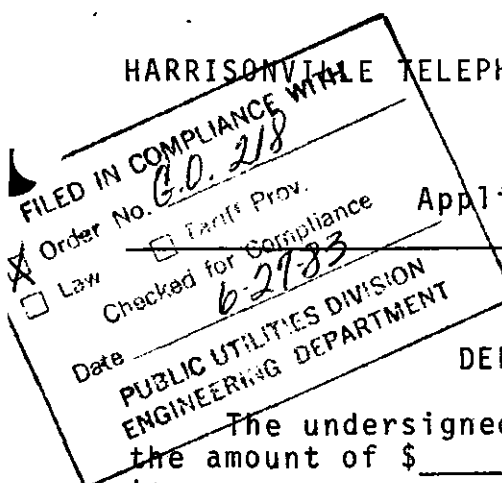 HARRISONVILLE TELEPH
FILED IN COMPLIANCE WITH
Order No. G.O. 218
Law Tariff Prov.
Checked for Compliance
Date 6-27-83
PUBLIC UTILITIES DIVISION
ENGINEERING DEPARTMENT
Appli
DE
The undersignee
the amount of $